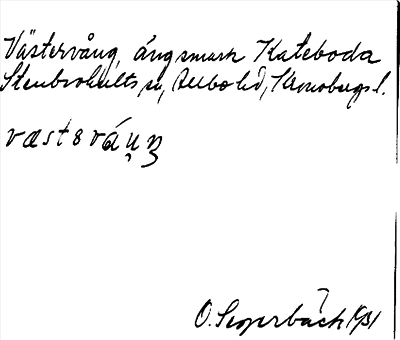 Västervång, ängsmark Kateboda
Stenbrohults sn, Allbo hd, Kronobergs l.
væstərváŋ
O. Sverbäck 1931